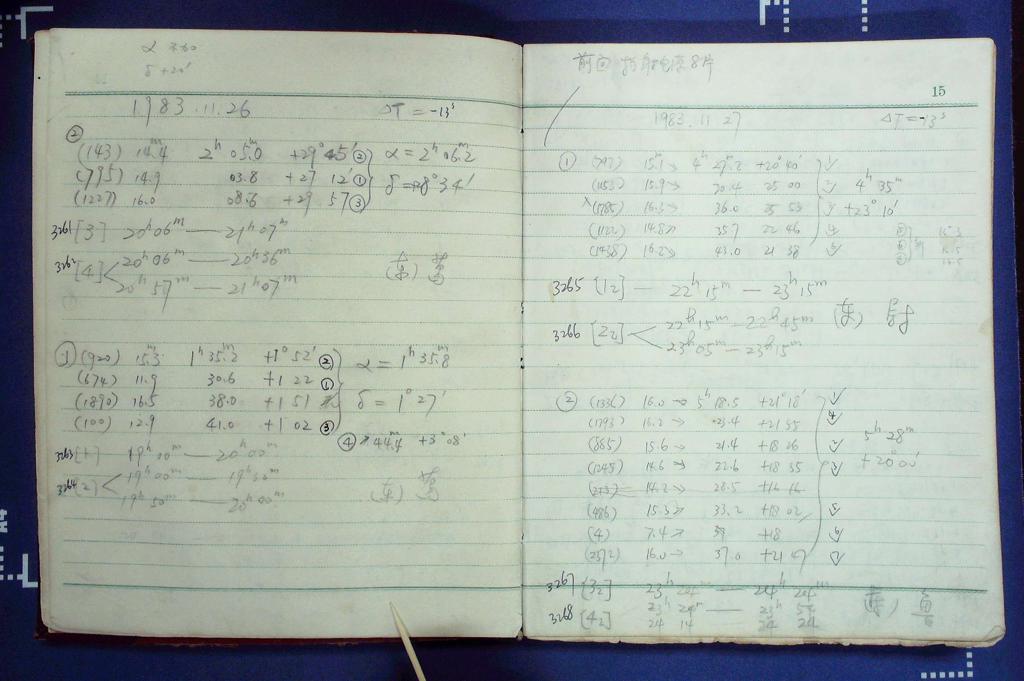 δ +20'
1983.11.26 ΔT = -13ˢ
②
(143) 14.4 2ʰ 05.0ᵐ +29° 45' ② α = 2ʰ 06.2ᵐ
(795) 14.9 03.8 +27 12' ①
(1227) 16.0 08.6 +29 57 ③
3261 [3] 20ʰ06ᵐ — 21ʰ07ᵐ
3262 [4] 20ʰ06ᵐ — 20ʰ36ᵐ
20ʰ57ᵐ — 21ʰ07ᵐ
① (920) 15.3 1ʰ 35.2ᵐ +1° 52' ② α = 1ʰ 35.8ᵐ
(674) 11.9 30.6 +1 22 ①
(1890) 16.5 38.0 +1 51 δ = 1° 27'
(100) 12.9 41.0 +1 02 ③
④ 44.4 +3° 08'
3263 [1] 19ʰ00ᵐ — 20ʰ00ᵐ
3264 [2] 19ʰ00ᵐ — 19ʰ30ᵐ
19ʰ50ᵐ — 20ʰ00ᵐ
15
1983.11.27 ΔT = -13ˢ
① (797) 15.1 → 4ʰ 29.2ᵐ +20° 40'
(1153) 15.9 → 30.4 25 00 4ʰ 35ᵐ
x (1785) 16.3 → 36.0 25 53 +23° 10'
(1122) 14.8 → 35.7 22 46
(1438) 16.2 → 43.0 21 38
3265 [12] — 22ʰ15ᵐ — 23ʰ15ᵐ
3266 [22] 22ʰ15ᵐ — 22ʰ45ᵐ
23ʰ05ᵐ — 23ʰ15ᵐ
② (1336) 16.0 → 5ʰ 18.5 +21° 18'
(1793) 16.2 → 23.4 +21 55
(865) 15.6 → 21.4 +18 26 5ʰ 28ᵐ
(1245) 14.6 → 22.6 +18 35 +20° 00'
14.2 → 28.5 +16 16
(486) 15.3 → 33.2 +18 02
(4) 7.4 → 39 +18
(2372) 16.0 → 37.0 +21 47
3267 [32] 23ʰ 24ᵐ — 24ʰ 24ᵐ
3268 [42] 23ʰ 24ᵐ — 23ʰ 54
24 14 24 24